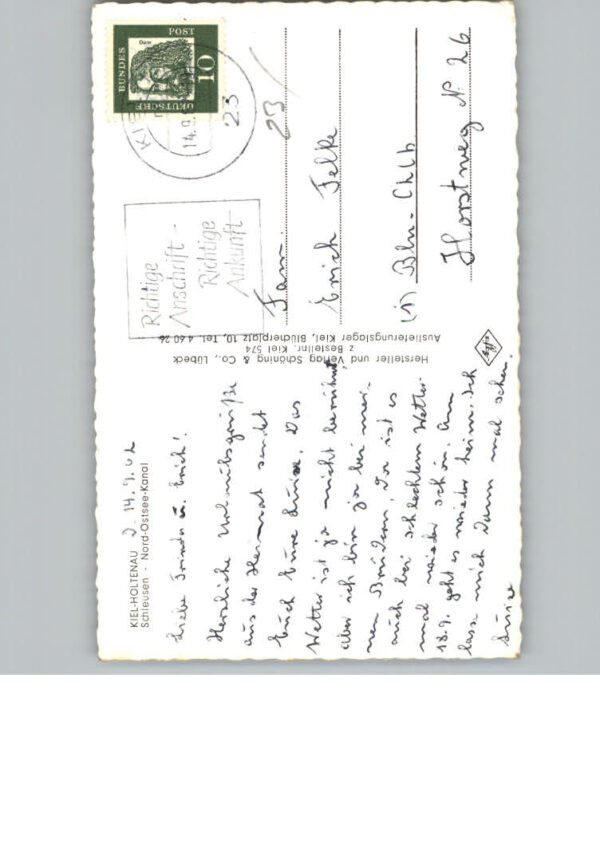 KIEL-HOLTENAU
Schleusen - Nord-Ostsee-Kanal
d. 14.9.62
Liebe Trinda u. Erich!
Herzliche Urlaubsgrüße
aus der Heimat sendet
Euch Eure Luise. Das
Wetter ist ja nicht berühmt,
aber ich bin ja bei mei-
nen Brüdern, da ist es
auch bei schlechtem Wetter
mal wieder schön. Am
18.9. geht es wieder heim. Ich
lass mich dann mal sehen.
Luise
Hersteller und Verlag Schöning & Co., Lübeck
z Bestellnr. Kiel 574
Auslieferungslager Kiel, Blücherplatz 10, Tel. 4 60 26
Agfa
DEUTSCHE
BUNDES
POST
10
KIEL
14.9.
23
Richtige
Anschrift -
Richtige
Ankunft
23
Fam.
Erich Felke
(1) Bln - Chlb
Horstweg № 26